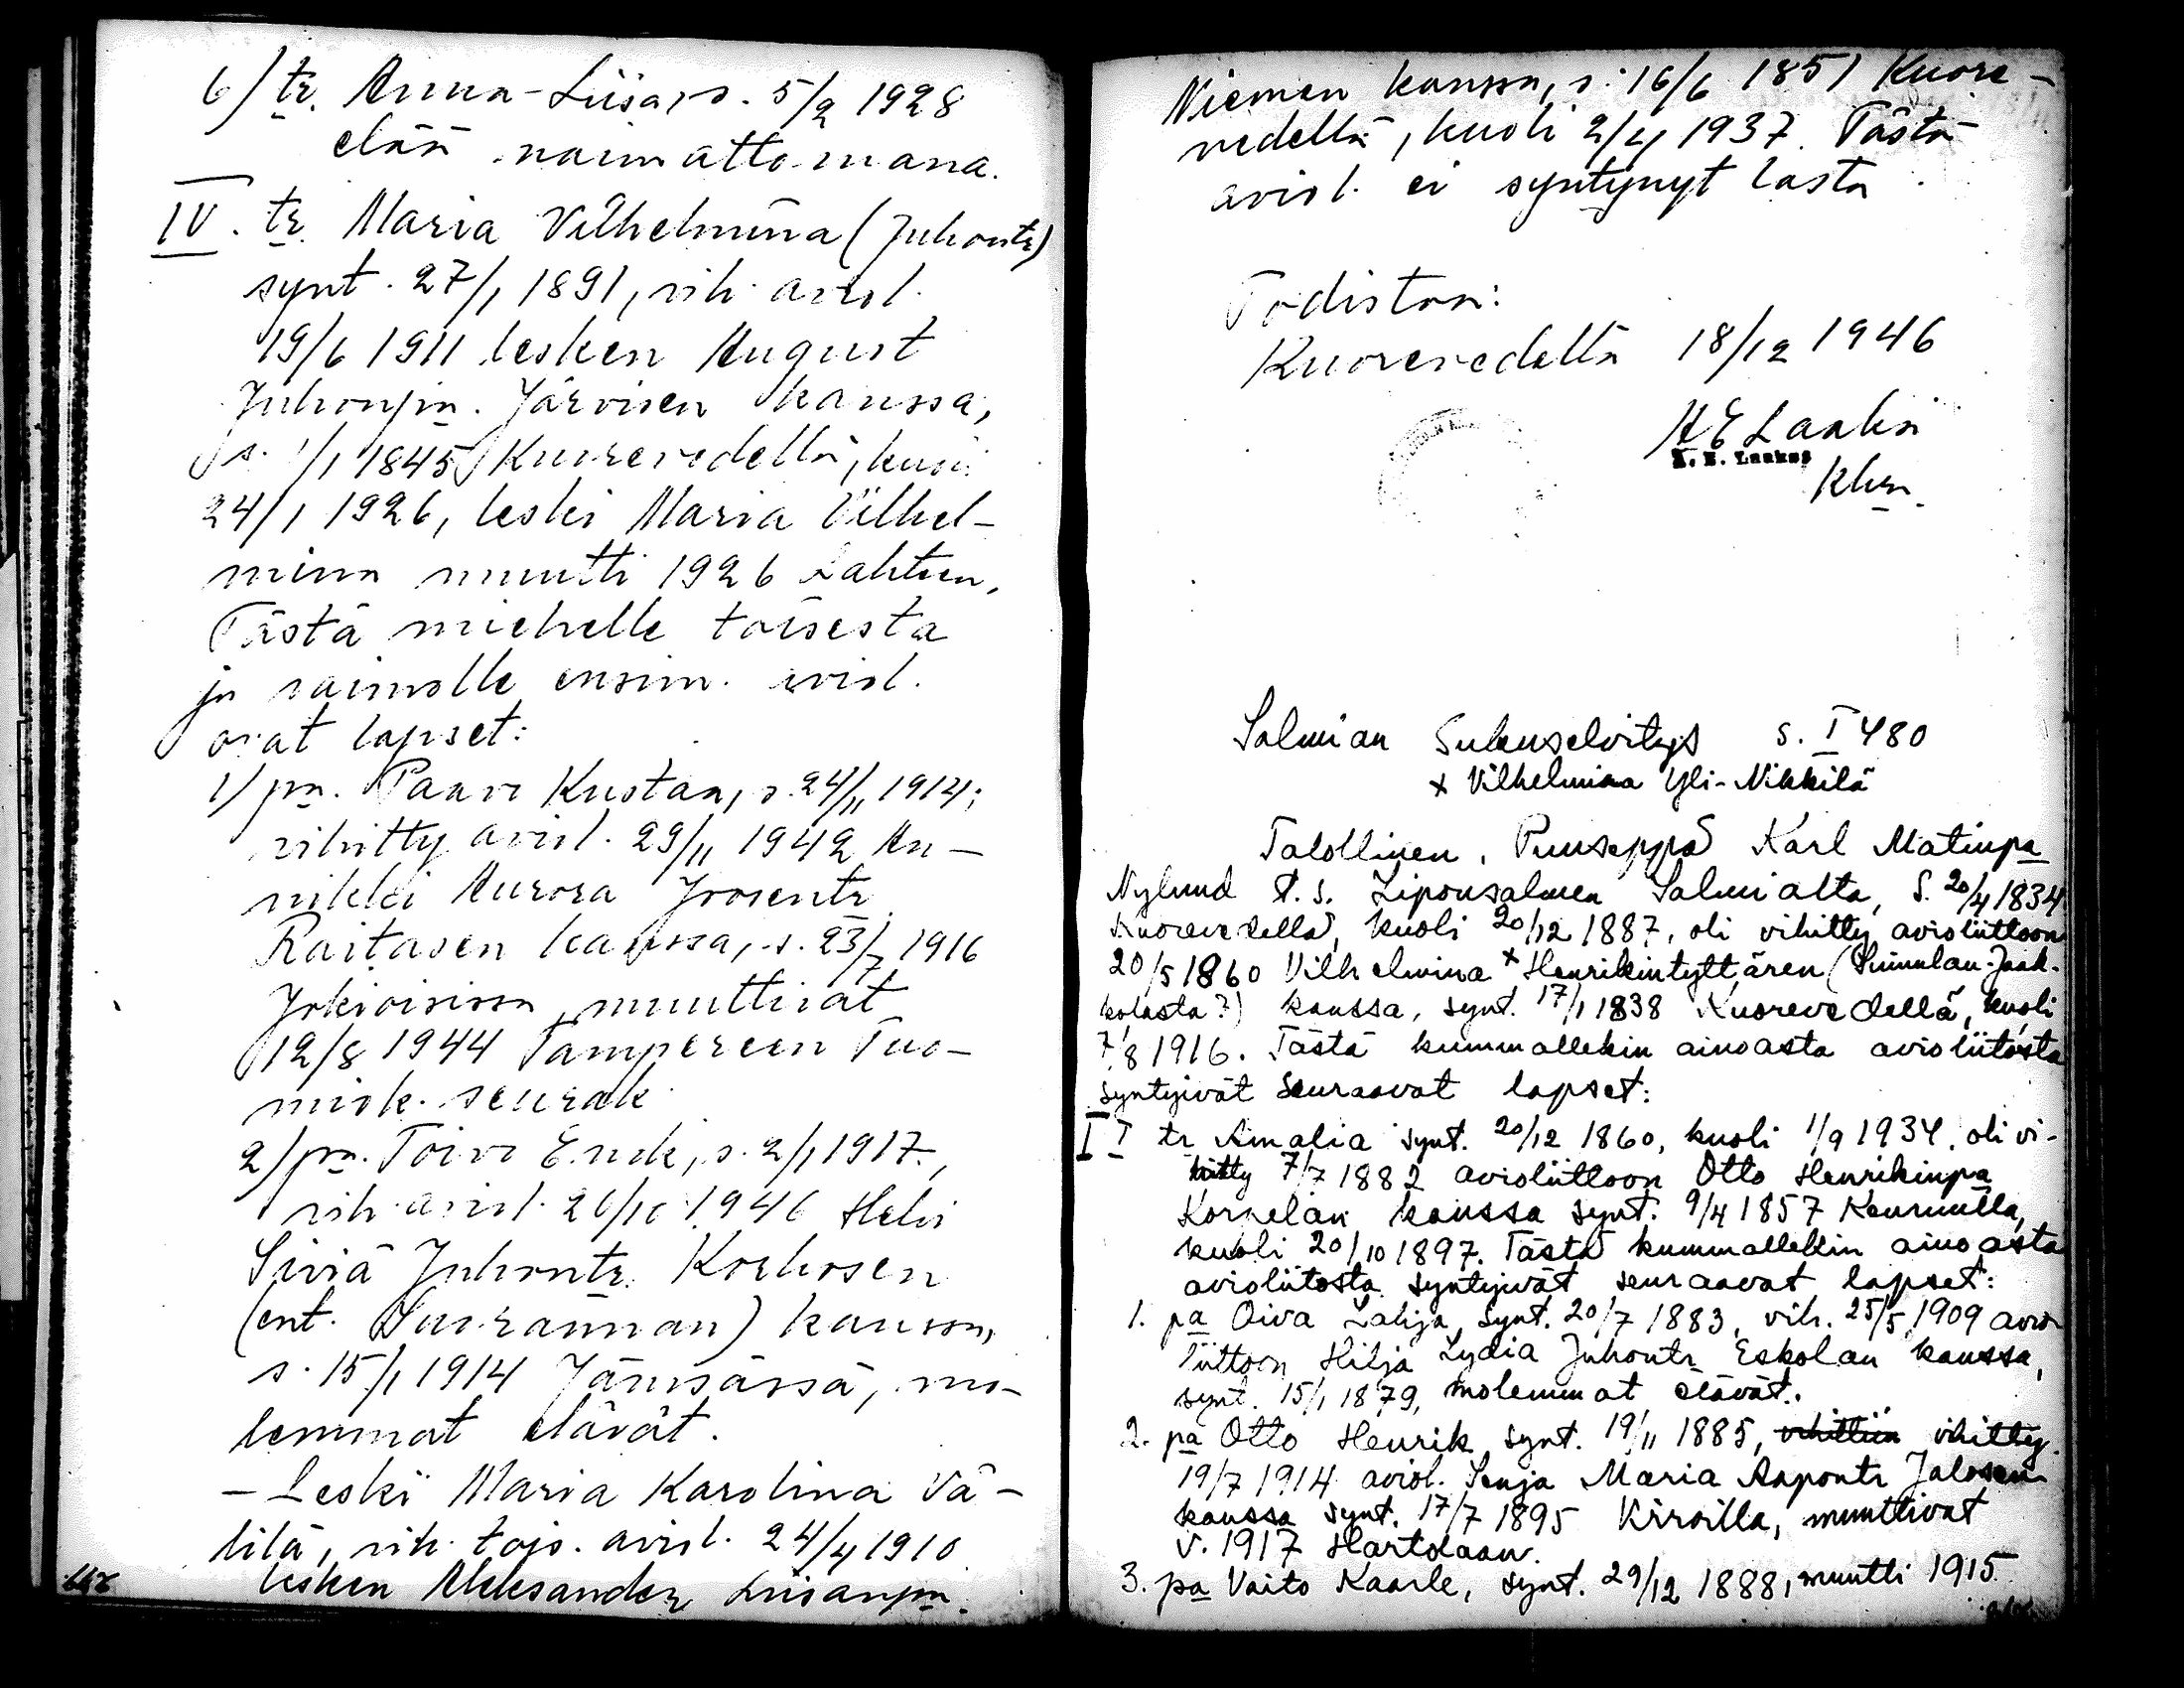 6) tr. Anna-Liisa, s. 5/2 1928
elää naimattomana.
IV. tr. Maria Vilhelmiina (Juhontr)
synt. 27/1 1891, vih. aviol.
19/6 1911 lesken August
Juhonpn. Järvisen kanssa,
s. 1/1 1845 Kuorevedellä, kuoli
24/1 1926, leski Maria Vilhel-
miina muutti 1926 Lahteen.
Tästä miehelle toisesta
ja vaimolle ensim. aviol.
ovat lapset:
1) pn. Paavo Kustaa, s. 24/11 1914;
vihitty aviol. 29/11 1942 An-
nikki Aurora Joosentr.
Raitasen kanssa, s. 23/7 1916
Jokioisissa, muuttivat
12/8 1944 Tampereen Tuo-
miok. seurak.
2) pn. Toivo Enok, s. 2/1 1917,
vih. aviol. 26/10 1946 Helvi
Siviä Juhontr. Korhosen
(ent. Suurannan) kanssa,
s. 15/1 1914 Jämsässä, mo-
lemmat elävät.
- Leski Maria Karolina Vä-
lilä, vih. tois. aviol. 24/4 1910
lesken Aleksander Liisanpn.
Niemen kanssa, s. 16/6 1851 Kuore-
vedellä, kuoli 2/4 1937. Tästä
aviol. ei syntynyt lasta.
Todistan:
Kuorevedellä 18/12 1946
H E Laaksi
Khn.
Salmian Sukuselvitys s. I 480
x Vilhelmiina Yli-Nikkilä
Talollinen, Puuseppä Karl Matinpa
Nylund t.s. Liponsalmen Salmialta, S. 20/4 1834
Kuorevedellä, kuoli 20/12 1887, oli vihitty avioliittoon
20/5 1860 Vilhelmina x Henrikintyttären (Simulan-Jaak-
kolasta?) kanssa, synt. 17/1 1838 Kuorevedellä, kuoli
7/8 1916. Tästä kummallekin ainoasta avioliitosta
syntyivät seuraavat lapset:
I I tr Amalia synt. 20/12 1860, kuoli 1/9 1934, oli vi-
hitty 7/7 1882 avioliittoon Otto Henrikinpa
Korpelan kanssa synt. 9/4 1857 Keuruulla,
kuoli 20/10 1897. Tästä kummallekin ainoasta
avioliitosta syntyivät seuraavat lapset:
1. pa Oiva Lahja synt. 20/7 1883, vih. 25/5 1909 avio-
liittoon Hilja Lydia Juhontr Eskolan kanssa,
synt. 15/1 1879, molemmat elävät.
2. pa Otto Henrik synt. 19/11 1885, vihittiin vihitty
19/7 1914 aviol. Senja Maria Aapontr Jalosen
kanssa synt. 17/7 1895 Virroilla, muuttivat
v. 1917 Hartolaan.
3. pa Voito Kaarle, synt. 29/12 1888, muutti 1915